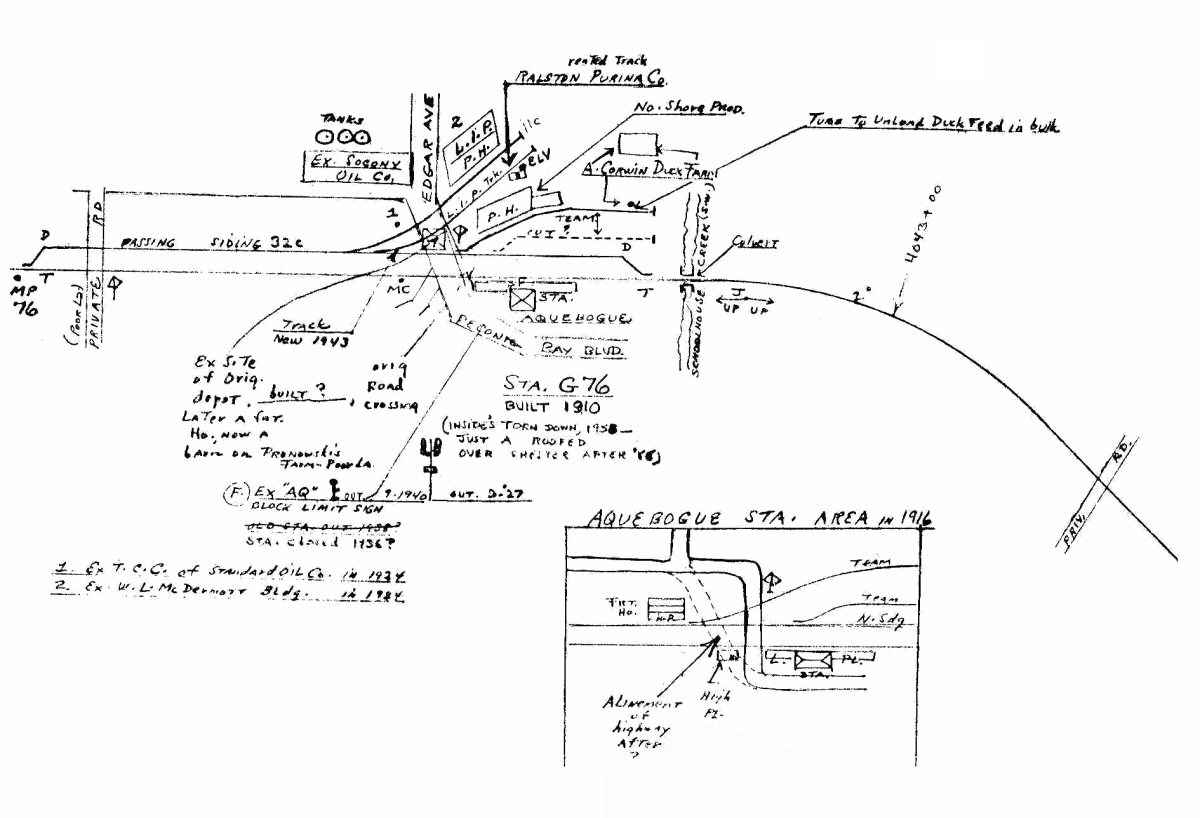 rented Track
RALSTON PURINA Co.
No. Shore Prod.
Tube To Unload Duck Feed in bulk
TANKS
EX SOCONY
OIL CO.
EDGAR AVE
2
L.I.P.
P.H.
11c
ELV
L.I.P. Trk.
A. CORWIN DUCK FARM
P.H.
TEAM
CUT ?
1
D
PASSING SIDING 32c
D
T
MP
76
(POOR LA)
PRIVATE RD
MC
F
STA.
AQUEBOGUE
T
Culvert
SCHOOLHOUSE CREEK (SW.)
J
UP UP
2°
4043+00
PRIV. RD.
Track
New 1943
PECONIC
BAY BLVD.
Ex Site
of Orig.
depot.
built ?
Later a frt.
Ho, now a
barn on Pronowski's
Farm-Poor La.
orig
Road
crossing
STA. G76
BUILT 1910
(INSIDE'S TORN DOWN, 1958—
JUST A ROOFED
OVER SHELTER AFTER
(F.) Ex "AQ"
OUT 9-1940
OUT. D-'27
BLOCK LIMIT SIGN
OLD STA. OUT 1938?
STA. closed 1936?
1. Ex T.C.C. of Standard Oil Co. in 1924
2. Ex. W.L. McDermott Bldg. in 1924
AQUEBOGUE STA. AREA in 1916
TEAM
FRT.
HO.
H.P.
Team
N. Sdg
L. PL.
STA.
High
Pl.
ALINEMENT
of
highway
After
?